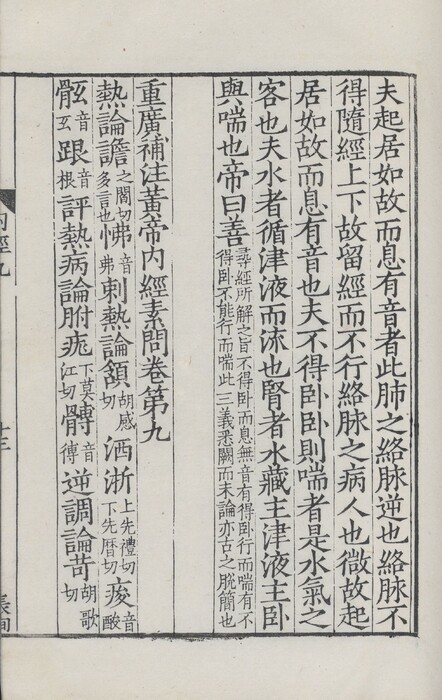 夫起居如故而息有音者此肺之絡脉逆也絡脉不
得隨經上下故留經而不行絡脉之病人也微故起
居如故而息有音也夫不得卧卧則喘者是水氣之
客也夫水者循津液而流也腎者水藏主津液主卧
與喘也帝曰善尋經所解之旨不得卧而息無音有得卧行而喘有不
得卧不能行而喘此三義悉闕而未論亦古之脫簡也
重廣補注黃帝內經素問卷第九
熱論譫之閻切多言也怫音弗刺熱論頷胡感切洒淅上先禮切下先曆切痠音酸
骹音
跟音根評熱病論胕痝下莫江切髆音博逆調論苛胡歌切
內經九
十三